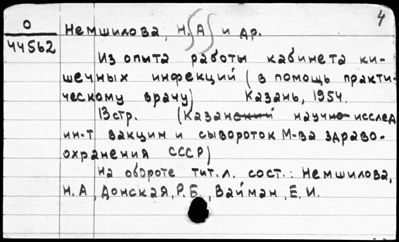 4
О
44562
Немшилова, Н. А и др.
Из опыта работы кабинета ки-
шечных инфекций (в помощь практи-
ческому врачу) Казань, 1954.
13стр. (Казанский научно исслед
ин-т вакцин и сывороток М-ва здраво-
охранения СССР)
На обороте тит.л. сост.: Немшилова,
Н.А, Донская, Р.Б, Вайман, Е.И.